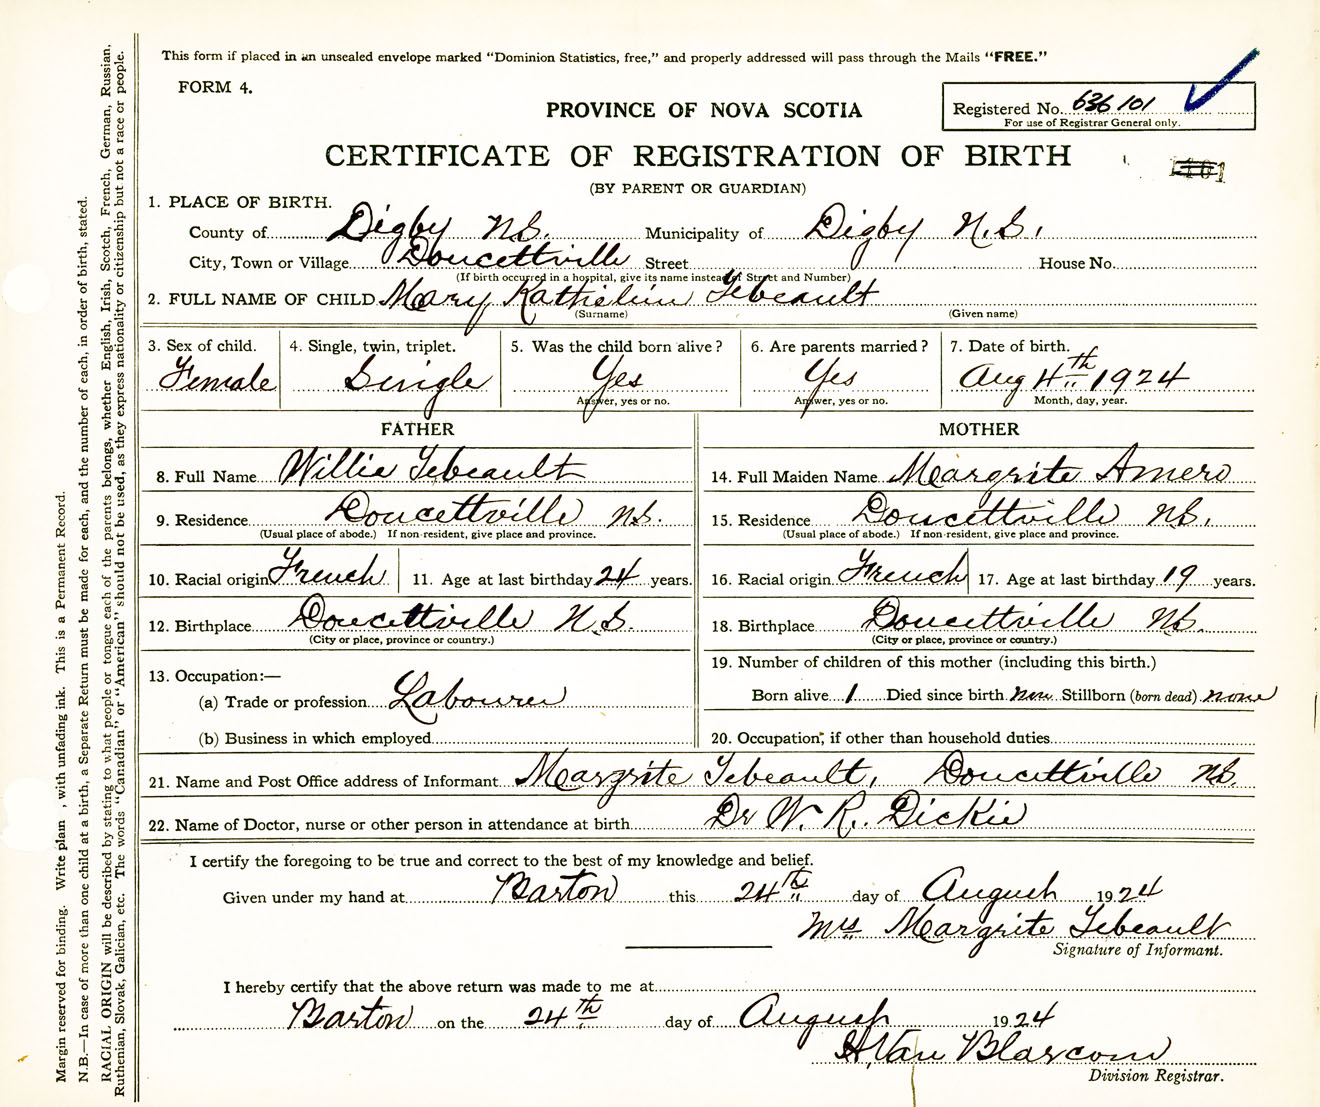 This form if placed in an unsealed envelope marked "Dominion Statistics, free," and properly addressed will pass through the Mails "FREE."
FORM 4.
PROVINCE OF NOVA SCOTIA
Registered No. 636101
For use of Registrar General only.
CERTIFICATE OF REGISTRATION OF BIRTH
(BY PARENT OR GUARDIAN)
1. PLACE OF BIRTH.
County of Digby N.S. Municipality of Digby N.S.
City, Town or Village Doucettville Street House No.
(If birth occurred in a hospital, give its name instead of Street and Number)
2. FULL NAME OF CHILD Mary Tebeault
(Surname) (Given name)
3. Sex of child. 4. Single, twin, triplet. 5. Was the child born alive? 6. Are parents married? 7. Date of birth.
Female Single Yes Yes Aug 4th 1924
Answer, yes or no. Answer, yes or no. Month, day, year.
FATHER MOTHER
8. Full Name Willie Tebeault 14. Full Maiden Name Margrite Amero
9. Residence Doucettville N.S. 15. Residence Doucettville N.S.
(Usual place of abode.) If non-resident, give place and province. (Usual place of abode.) If non-resident, give place and province.
10. Racial origin French 11. Age at last birthday 24 years. 16. Racial origin French 17. Age at last birthday 19 years.
12. Birthplace Doucettville N.S. 18. Birthplace Doucettville N.S.
(City or place, province or country.) (City or place, province or country.)
13. Occupation:— 19. Number of children of this mother (including this birth.)
(a) Trade or profession Labourer Born alive 1 Died since birth non Stillborn (born dead) none
(b) Business in which employed 20. Occupation, if other than household duties
21. Name and Post Office address of Informant Margrite Tebeault, Doucettville N.S.
22. Name of Doctor, nurse or other person in attendance at birth Dr W. R. Dickie
I certify the foregoing to be true and correct to the best of my knowledge and belief.
Given under my hand at Barton this 24th day of August 1924
Mrs Margrite Tebeault
Signature of Informant.
I hereby certify that the above return was made to me at
Barton on the 24th day of August 1924
H. Van Blarcom
Division Registrar.
Margin reserved for binding. Write plain, with unfading ink. This is a Permanent Record.
N.B.—In case of more than one child at a birth, a Separate Return must be made for each, and the number of each, in order of birth, stated.
RACIAL ORIGIN will be described by stating to what people or tongue each of the parents belongs, whether English, Irish, Scotch, French, German, Russian,
Ruthenian, Slovak, Galician, etc. The words "Canadian" or "American" should not be used, as they express nationality or citizenship but not a race or people.